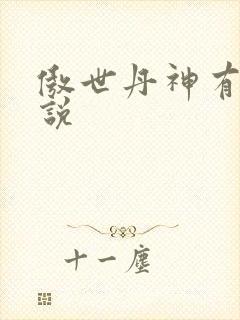 傲世丹神有
說
十一塵